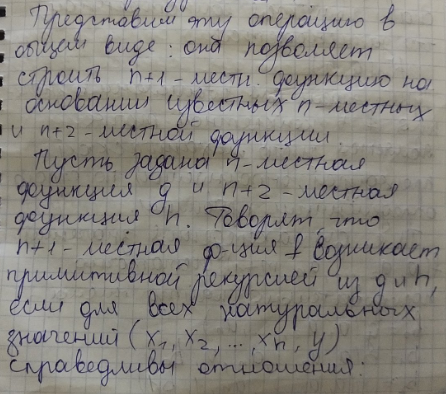 Представим эту операцию в
общем виде: она позволяет
строить n+1-местн. функцию на
основании известных n-местных
и n+2-местной функции.
Пусть задана n-местная
функция g и n+2-местная
функция h. Говорят, что
n+1-местная ф-ция f возникает
примитивной рекурсией из g и h,
если для всех натуральных
значений (x₁, x₂, ..., xₙ, y)
справедливы отношения: